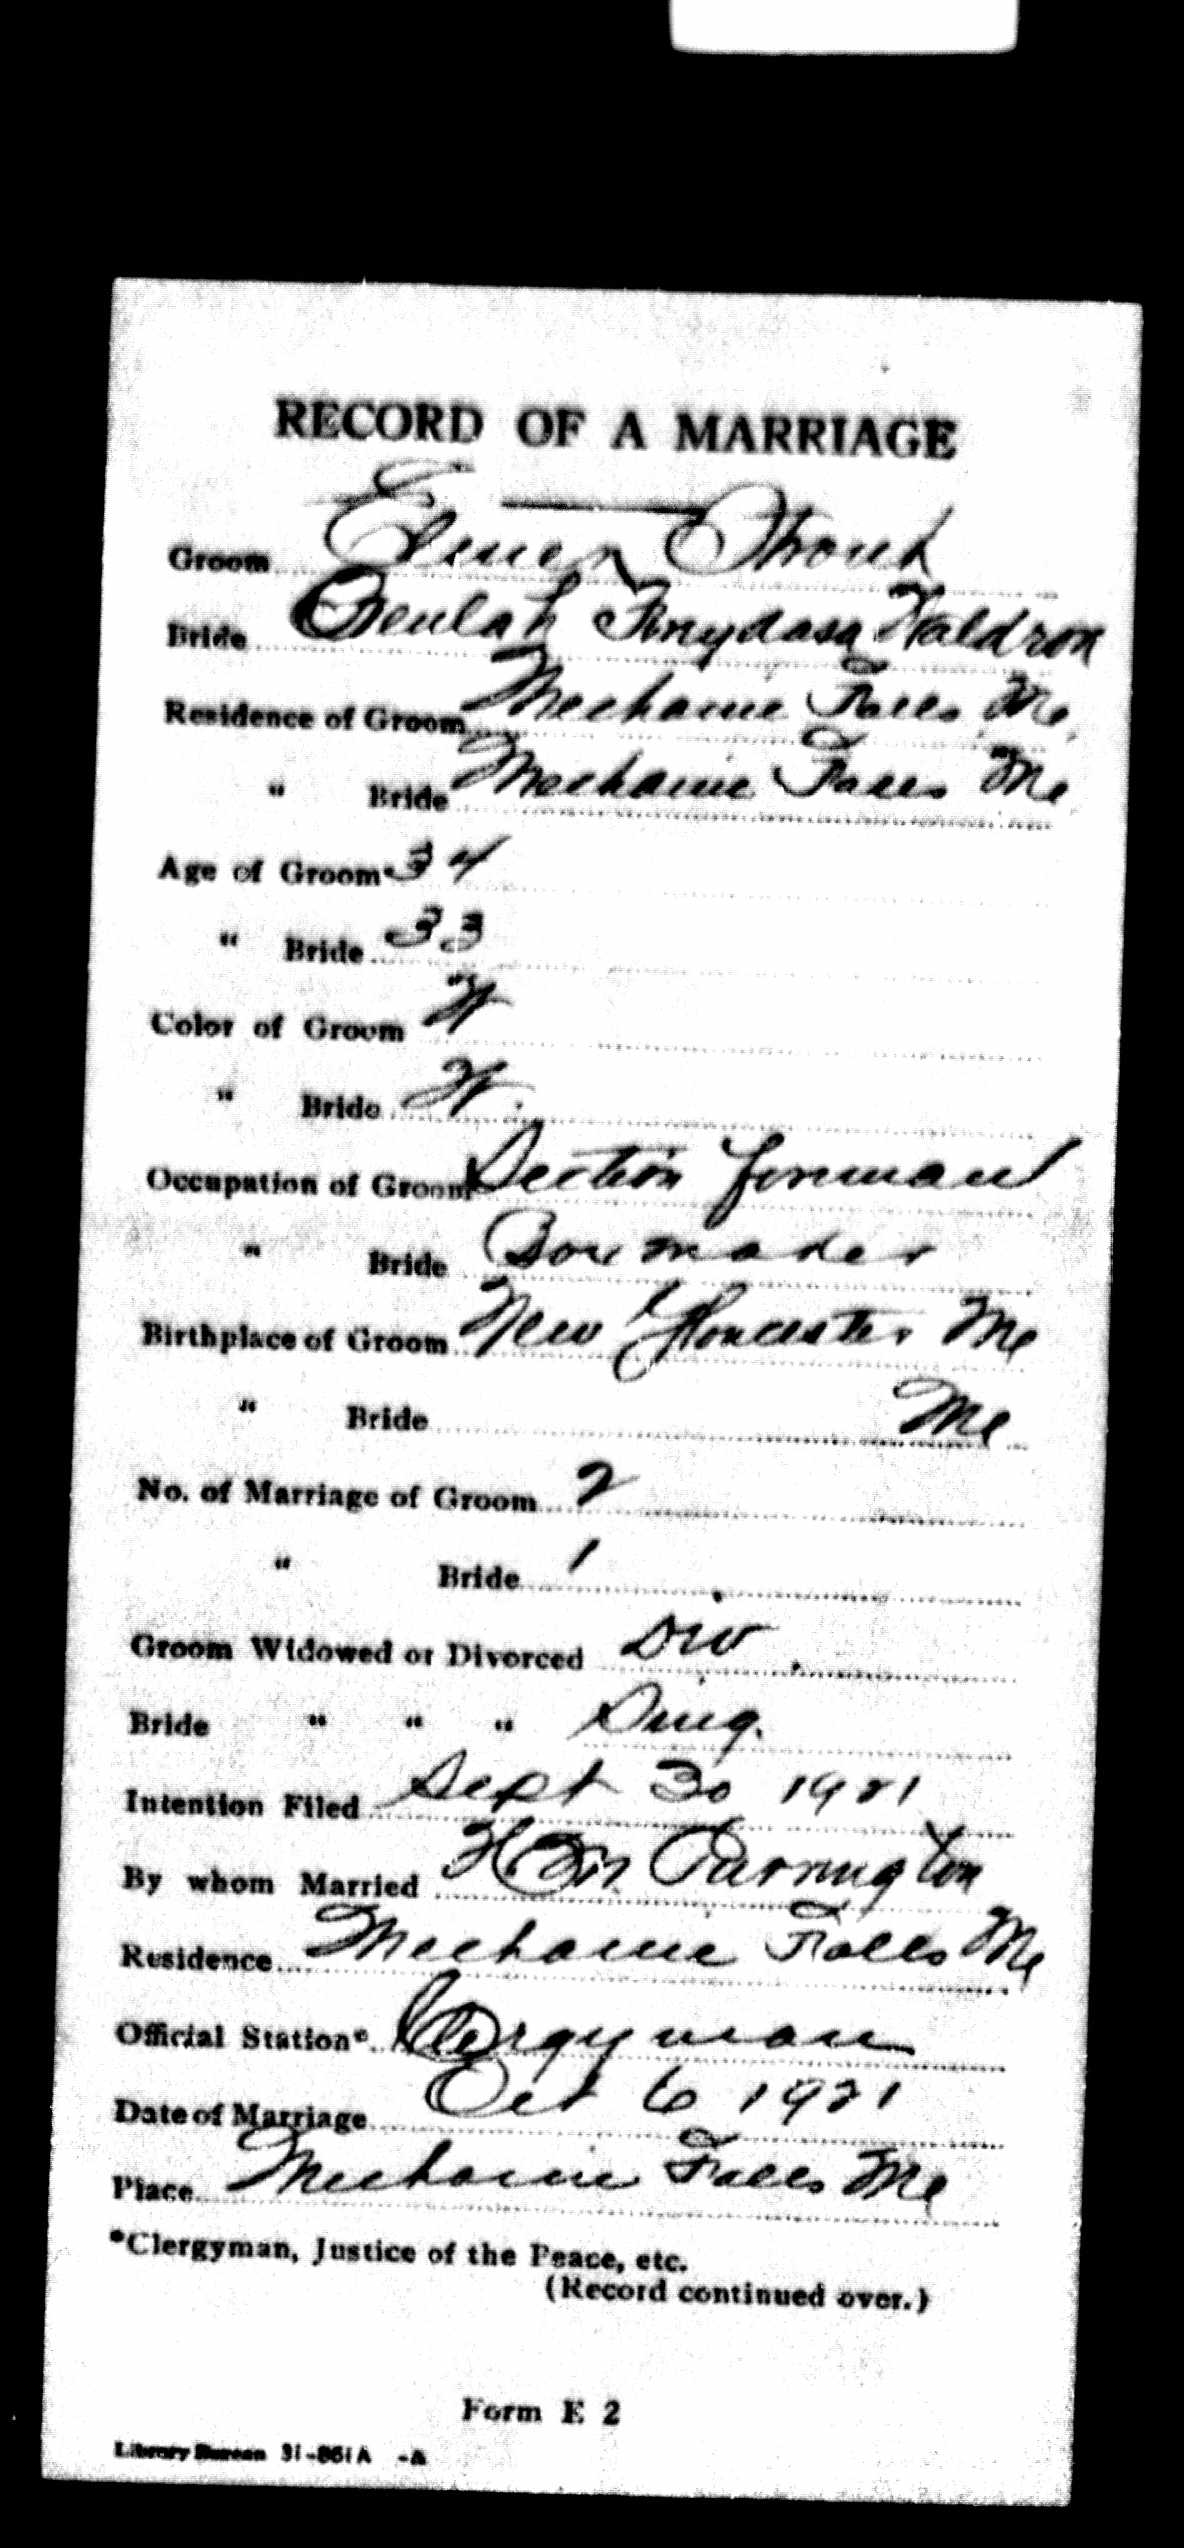 RECORD OF A MARRIAGE
Groom Elmer Strout
Bride Beulah Waldron
Residence of Groom Mechanic Falls Me
" Bride Mechanic Falls Me
Age of Groom 34
" Bride 33
Color of Groom W
" Bride W.
Occupation of Groom Section foreman
" Bride Box maker
Birthplace of Groom New Gloucester Me
" Bride Me
No. of Marriage of Groom 2
" Bride 1
Groom Widowed or Divorced Div
Bride " " " Sing.
Intention Filed Sept 30 1921
By whom Married Farrington
Residence Mechanic Falls Me
Official Station* Clergyman
Date of Marriage Oct 6 1921
Place Mechanic Falls Me
*Clergyman, Justice of the Peace, etc.
(Record continued over.)
Form E 2
Library Bureau